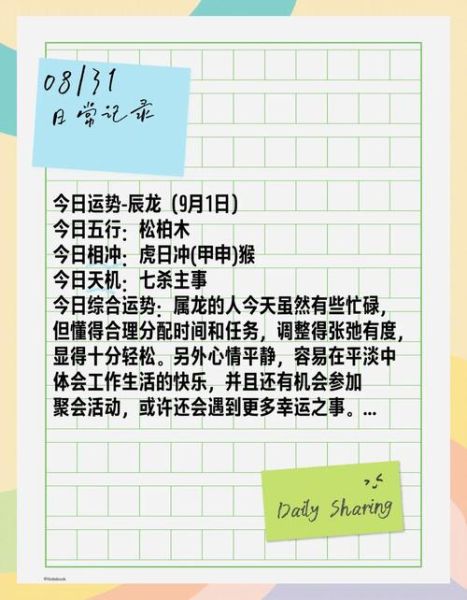 08/31
日常记录
今日运势-辰龙（9月1日）
今日五行：松柏木
今日相冲：虎日冲(甲申)猴
今日天机：七杀主事
今日综合运势：属龙的人今天虽然有些忙碌，
但懂得合理分配时间和任务，调整得张弛有度，
显得十分轻松。另外心情平静，容易在平淡中
体会工作生活的快乐，并且还有机会参加
聚会活动，或许还会遇到更多幸运之事。...
Daily Sharing